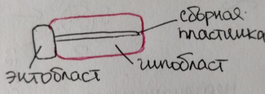 сборная
пластинка
гипобласт
эктобласт